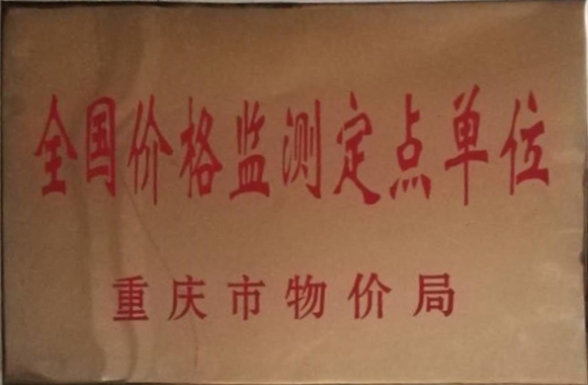 全国价格监测定点单位
重庆市物价局